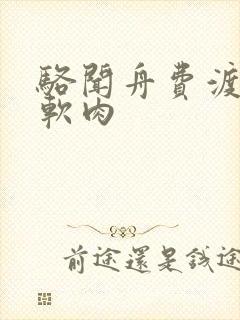 駱聞舟費渡
軟肉
前途還是錢途